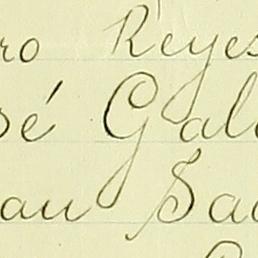 ro Reyes
sé Gal
an Sa